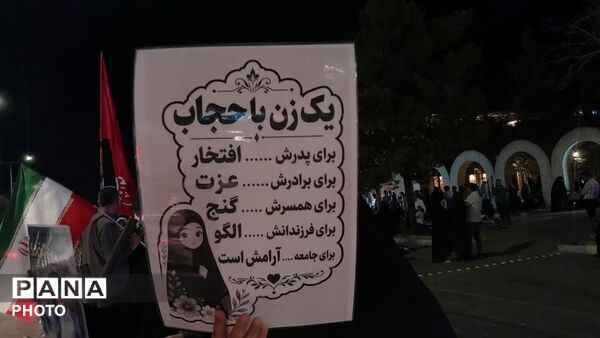 یک زن با حجاب
برای پدرش ...... افتخار
برای برادرش ....... عزت
برای همسرش ..... گنج
برای فرزندانش ..... الگو
برای جامعه .... آرامش است
PANA
PHOTO